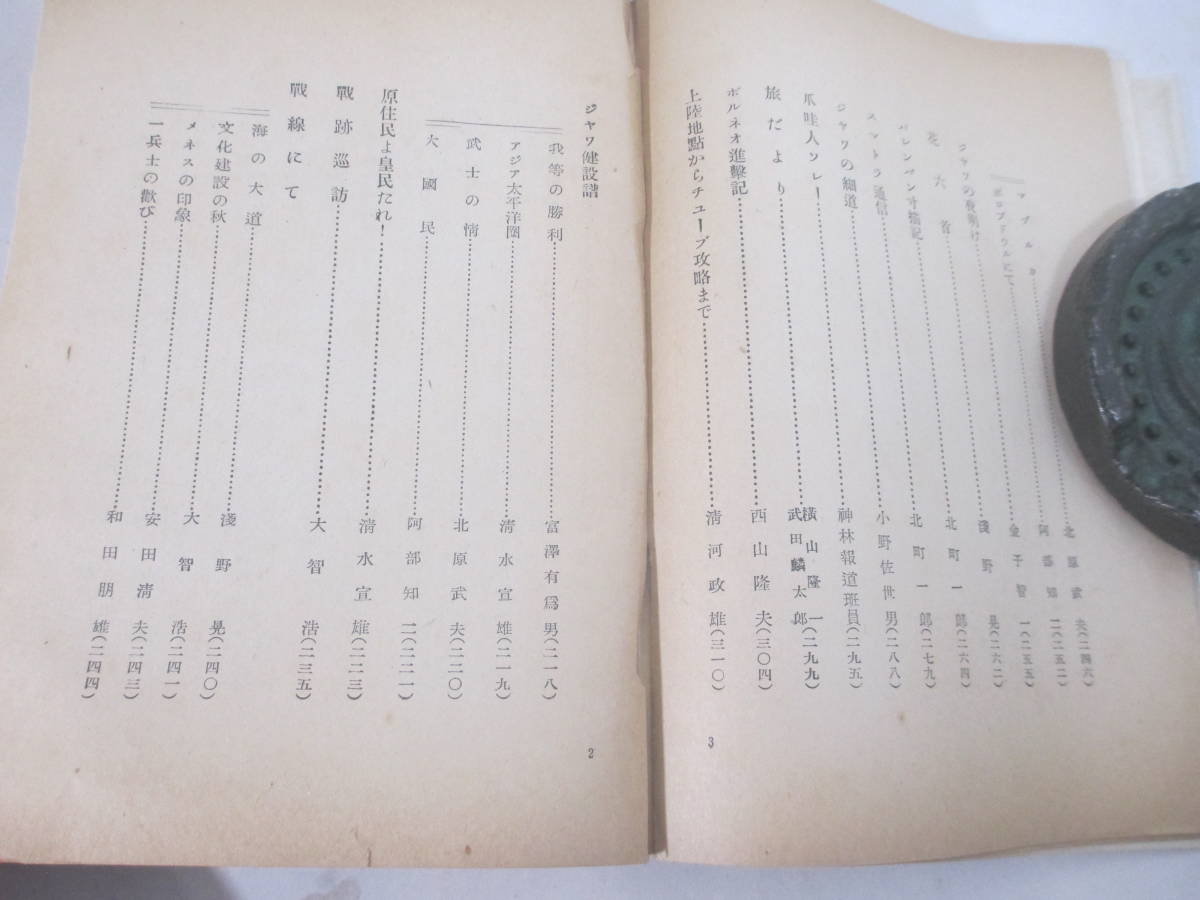 ジャワ建設譜
我等の勝利……富澤有爲男(二一八)
アジア太平洋圏……清水宣雄(二一九)
武士の情……北原武夫(二二〇)
大國民……阿部知二(二二一)
原住民よ皇民たれ!……清水宣雄(二二三)
戰跡巡訪……大智浩(二三五)
戰線にて
海の大道……淺野晃(二四〇)
文化建設の秋……大智浩(二四一)
メネスの印象……安田清夫(二四三)
一兵士の歡び……和田朋雄(二四四)
2
北原武夫(二四六)
ボロブドウルにて……阿部知二(二五二)
ジャワの夜明け……金子智一(二五五)
花六首……淺野晃(二六二)
パレンバン寸描記……北町一郎(二六四)
スマトラ通信……北町一郎(二七九)
ジャワの細道……小野佐世男(二八八)
爪哇人ソレ!……神林報道班員(二九五)
旅だより……横山隆一 武田麟太郎(二九九)
ボルネオ進擊記……西山隆夫(三〇四)
上陸地點からチューブ攻略まで……清河政雄(三一〇)
3